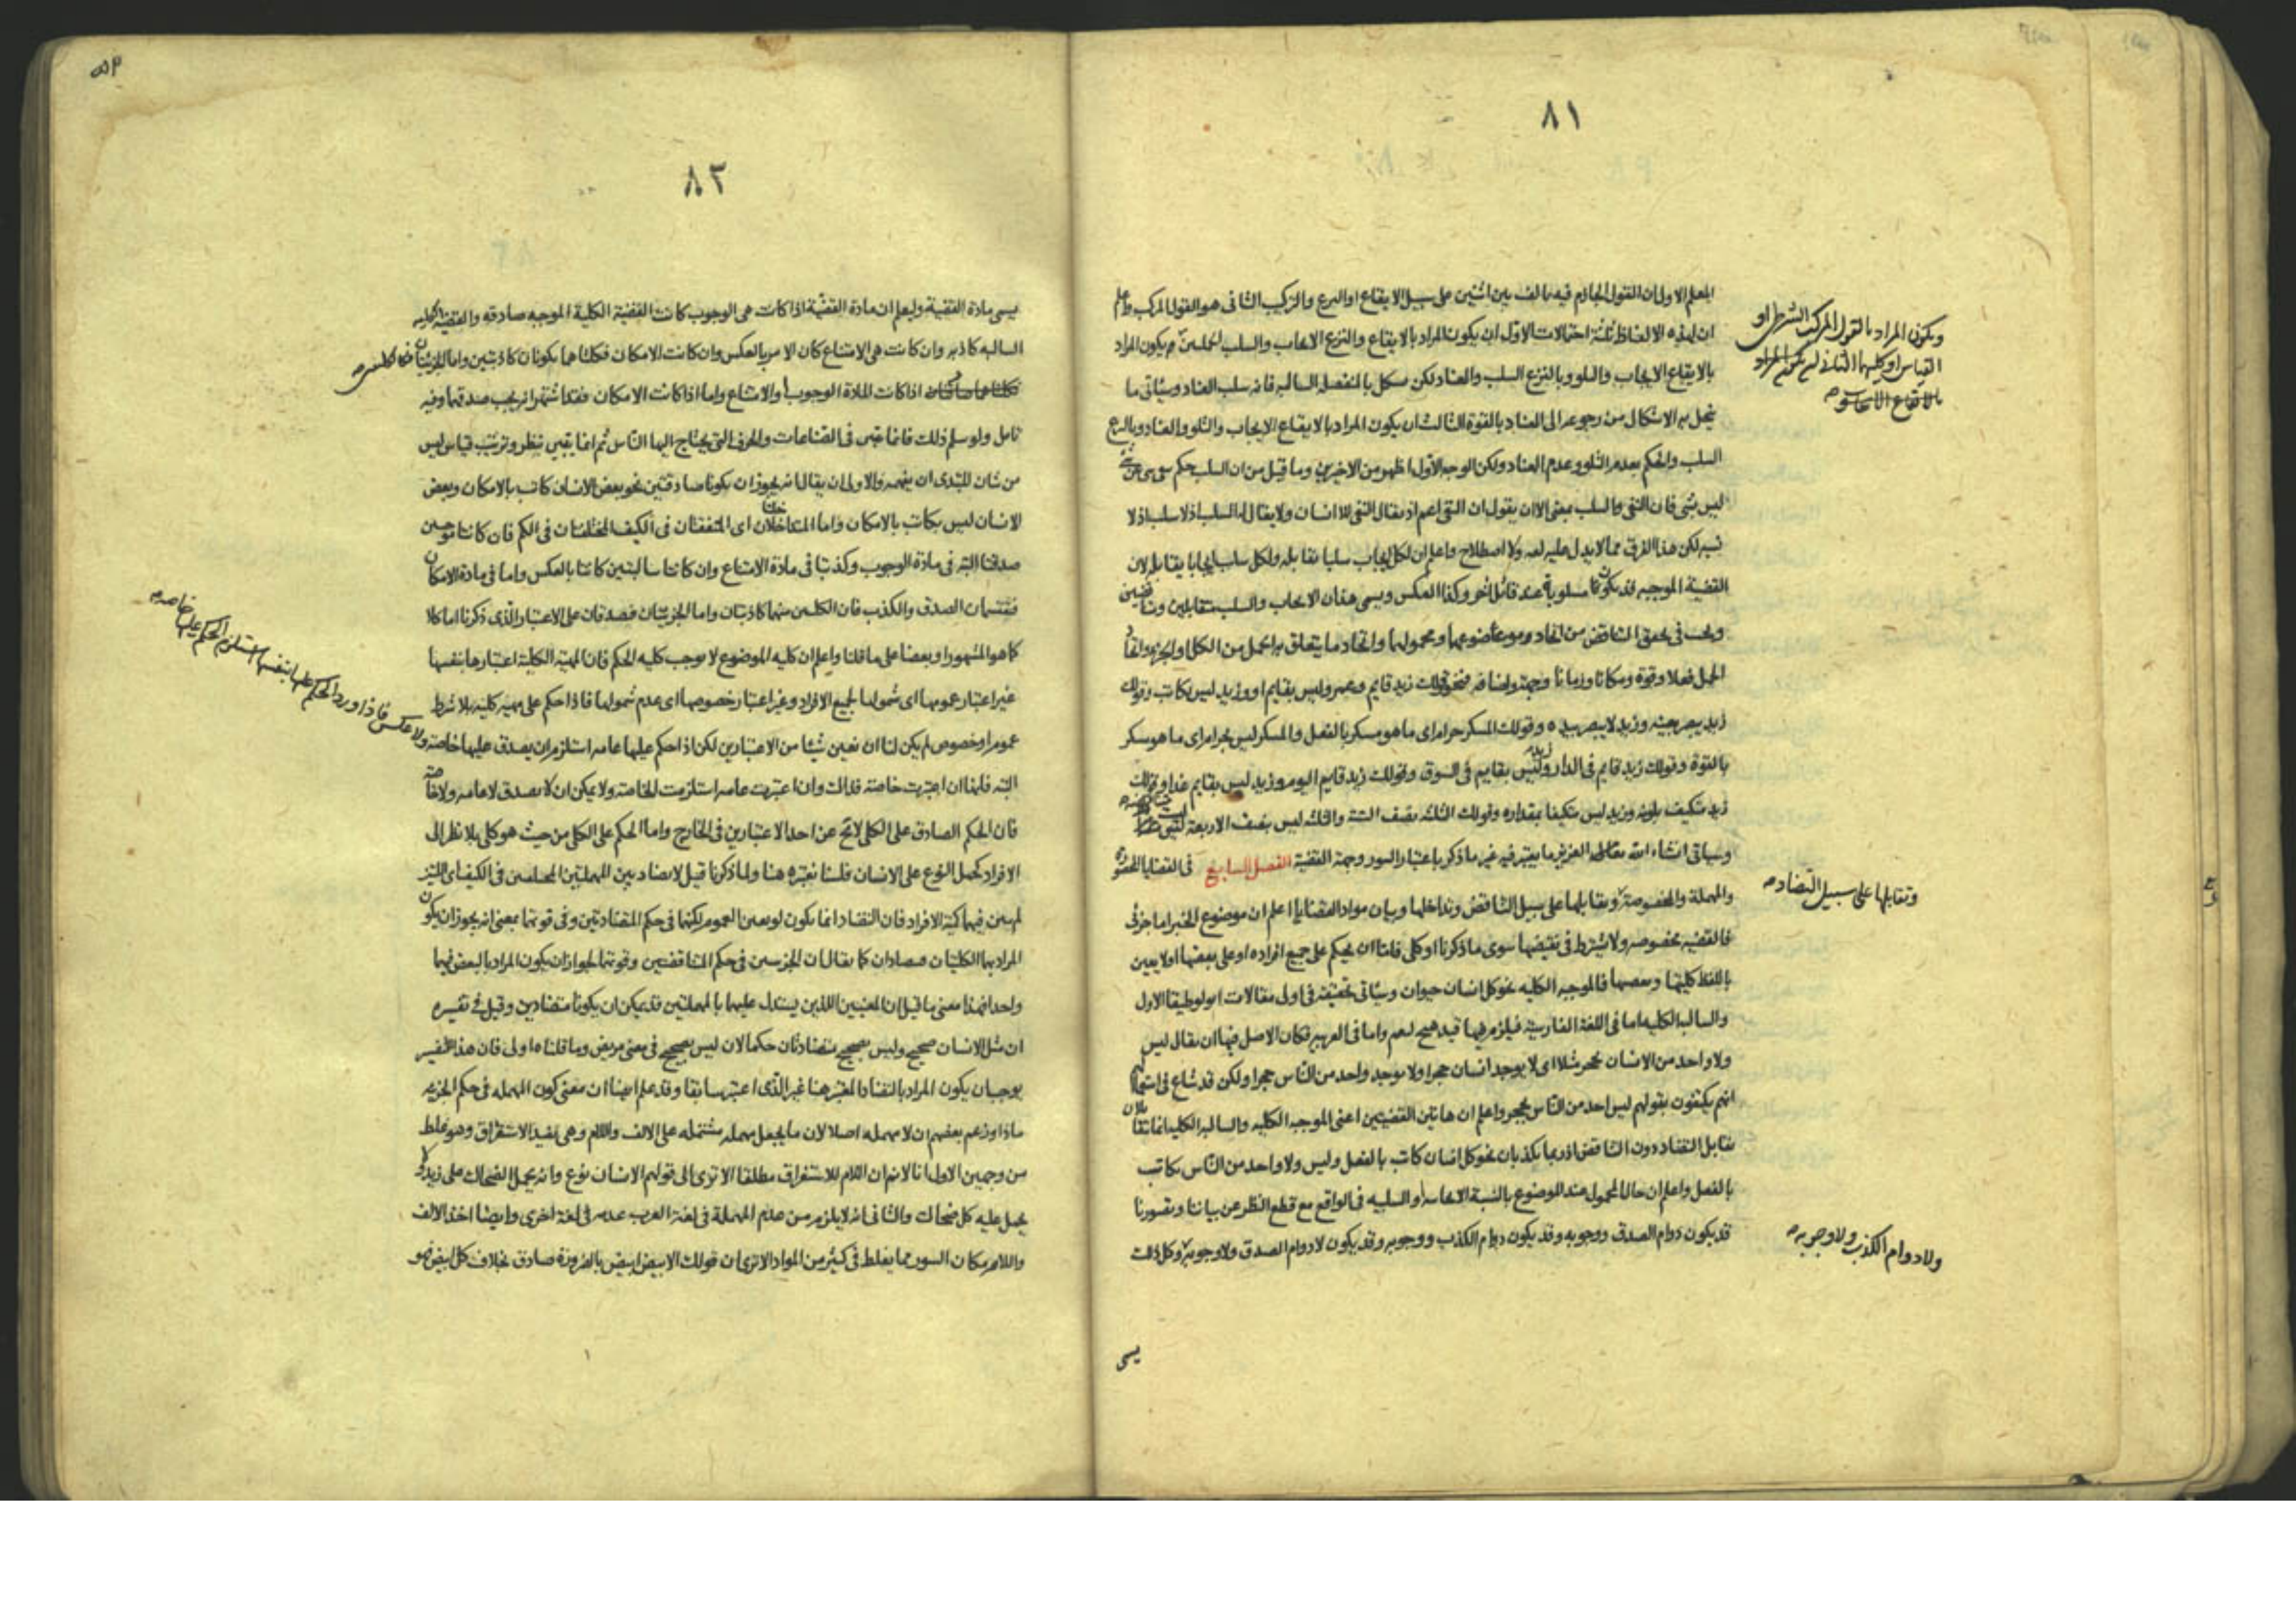 ٨١
المعلم الاول ان القول الجازم فيه تالف بين اثنين على سبيل الايقاع او النزع والتركيب الثانى هو القول المركب واعلم
ان لهذه الالفاظ ثلثة احتمالات الاول ان يكون المراد بالايقاع والنزع الايجاب والسلب الحمليين ويكون المراد
بالايقاع الايجاب والتلو وبالنزع السلب والعناد لكن يشكل بالمنفصلة السالبه فانه سلب العناد وسيأتى ما
ينحل به الاشكال من رجوعه الى العناد بالقوة الثالث ان يكون المراد بالايقاع الايجاب والتلو والعناد وبالنزع
السلب والحكم بعدم التلو وعدم العناد ولكن الوجه الاول اظهر من الاخيرين وما قيل من ان السلب حكم
ليس بشى فان النفى والسلب بمعنى الا ان يقول ان النفى اعم اذ يقال النفى للاانسان ولا يقال له السلب اذ لا سلب اذ لا
نسبه لكن هذا الفرق مما لا يدل عليه لغه ولا اصطلاح واعلم ان لكل ايجاب سلبا يقابله ولكل سلب ايجابا يقابله لان
القضية الموجبه قد يكون مسلوبة عند قائل اخر وكذا العكس ويسمى هذان الايجاب والسلب متقابلين ومتناقضين
ويجب فى تحقق التناقض من اتحاد موضوعهما ومحمولهما واتحاد ما يتعلق به الحمل من الكل او الجزء واتفاق
الحمل فعلا وقوة ومكانا وزمانا وجهة واضافه فنحو قولك زيد قايم وعمرو ليس بقايم او وزيد ليس بكاتب وقولك
زيد يبصر بعينه وزيد لا يبصر بيده وقولك المسكر حرام اى ما هو مسكر بالفعل والمسكر ليس بحرام اى ما هو مسكر
بالقوة وقولك زيد قايم فى الدار وزيد ليس بقايم فى السوق وقولك زيد قايم اليوم وزيد ليس بقايم غدا وقولك
زيد متكيف بلونه وزيد ليس متكيفا بمقداره وقولك الثلثه نصف الستة والثلثه ليس بنصف الاربعة ليست متناقضه
وسياتى انشاء الله تعالى العزيز ما يعتبر فيه غير ما ذكر باعتبار السور وجهة القضية الفصل السابع فى القضايا المحصورة
والمهملة والمخصوصة وتقابلها على سبيل التناقض وتداخلها وبيان مواد القضايا اعلم ان موضوع الخبر اما جزئى
فالقضيه مخصوصه ولا يشترط فى نقيضها سوى ما ذكرنا او كلى فاما ان يحكم على جميع افراده او على بعضها او لا يعين
باللفظ كليتها وبعضها فالموجبه الكليه نحو كل انسان حيوان وسيأتى تحقيقه فى اول مقالات انولوطيقا الاول
والسالبة الكليه اما فى اللغة الفارسية فيلزم فيها قيد هيج لعم واما فى العربيه فكان الاصل فيها ان يقال ليس
ولا واحد من الانسان بحجر مثلا اى لا يوجد انسان حجرا ولا يوجد واحد من الناس حجرا ولكن قد شاع فى استعمالهم
انهم يكتفون بقولهم ليس احد من الناس بحجر واعلم ان هاتين القضيتين اعنى الموجبه الكليه والسالبه الكليه انما تتقابلان
تقابل التضاد دون التناقض اذ ربما يكذبان نحو كل انسان كاتب بالفعل وليس ولا واحد من الناس بكاتب
بالفعل واعلم ان حال المحمول عند الموضوع بالنسبة الايجابيه او السلبيه فى الواقع مع قطع النظر عن بياننا وتصورنا
قد يكون دوام الصدق ووجوبه وقد يكون دوام الكذب ووجوبه وقد يكون لا دوام الصدق ولا وجوبه وكل ذلك
يسمى
ويكون المراد بالقول المركب الشرطى او
القياس او كليهما الثانى ان يكون المراد
بالايقاع الايجاب
وتقابلها على سبيل التضاد
ولا دوام الكذب ولا وجوبه
٨٢
يسمى مادة القضية وليعلم ان مادة القضية اذا كانت هى الوجوب كانت القضية الكلية الموجبه صادقه والقضية الكليه
السالبه كاذبه وان كانت هى الامتناع كان الامر بالعكس وان كانت الامكان فكلتاهما يكونان كاذبتين واما الجزئيتان
اذا كانت المادة الوجوب او الامتناع واما اذا كانت الامكان فقد اشتهر انه يجب صدقهما وفيه
تامل ولو سلم ذلك فانما يتبين فى الصناعات والحرف التى يحتاج اليها الناس ثم انما يتبين بنظر وترتيب قياس ليس
من شان المبتدى ان يفهمه والاولى ان يقال انه يجوز ان يكونا صادقتين نحو بعض الانسان كاتب بالامكان وبعض
الانسان ليس بكاتب بالامكان واما المتداخلتان اى المتفقتان فى الكيف المختلفتان فى الكم فان كانتا موجبتين
صدقتا البته فى مادة الوجوب وكذبتا فى مادة الامتناع وان كانتا سالبتين كانتا بالعكس واما فى مادة الامكان
فتقتسمان الصدق والكذب فان الكليتين منهما كاذبتان واما الجزئيتان فصدقان على الاعتبار الذى ذكرنا اما كلا
كما هو المشهور او بعضا على ما قلنا واعلم ان كليه الموضوع لا يوجب كليه الحكم فان المهية الكلية اعتبارها بنفسها
غير اعتبار عمومها اى شمولها لجميع الافراد وغير اعتبار خصوصها اى عدم شمولها فاذا حكم على مهية كليه بلا شرط
عموم او خصوص لم يكن لنا ان نعين شيئا من الاعتبارين لكن اذا حكم عليها عامه استلزم ان يصدق عليها خاصة ولا عكس
البته فانها ان اعتبرت خاصة فذاك وان اعتبرت عامه استلزمت الخاصة ولا يمكن ان لا يصدق لا عامه ولا خاصة
فان الحكم الصادق على الكلى لا يخ عن احد الاعتبارين فى الخارج واما الحكم على الكلى من حيث هو كلى بلا نظر الى
الافراد كحمل النوع على الانسان فلسنا نعتبره هنا ولما ذكرنا قيل لا تضاد بين المهملتين المختلفتين فى الكيف اى اللتين
لم يبين فيهما كمية الافراد فان التضاد انما يكون لو تعين العموم لكنهما فى حكم المتضادتين وفى قوتهما بمعنى انه يجوز ان يكون
المراد بهما الكليتان فيتضادان كما يقال ان الجزئيتين فى حكم المتناقضتين وقوتهما لجواز ان يكون المراد بالبعض فيهما
واحدا فهذا معنى ما قيل ان المعنيين اللذين يستدل عليهما بالمهملتين قد يمكن ان يكونا متضادين وقيل فى تفسيره
ان مثل الانسان صحيح وليس بصحيح متضادتان حكما لان ليس بصحيح فى معنى مريض وما قلناه اولى فان هذا التفسير
يوجب ان يكون المراد بالتضاد المعتبر هنا غير الذى اعتبر سابقا وقد علم ايضا ان معنى كون المهمله فى حكم الجزئيه
ماذا وزعم بعضهم ان لا مهمله اصلا لان ما يجعل مهمله مشتمله على الالف واللام وهى تفيد الاستغراق وهو غلط
من وجهين الاول انا لا نم ان اللام للاستغراق مطلقا الا ترى الى قولهم الانسان نوع وانه يحمل الضحاك على زيد ولا
يحمل عليه كل ضحاك والثانى انه لا يلزم من عدم المهملة فى لغة العرب عدمه فى لغة اخرى وايضا اخذ الالف
واللام مكان السور مما يغلط فى كثير من المواد الا ترى ان قولك الابيض ابيض بالضرورة صادق بخلاف كل ابيض فهو
فاذا ورد الحكم عليها بنفسها استلزم الحكم عليها خاصه